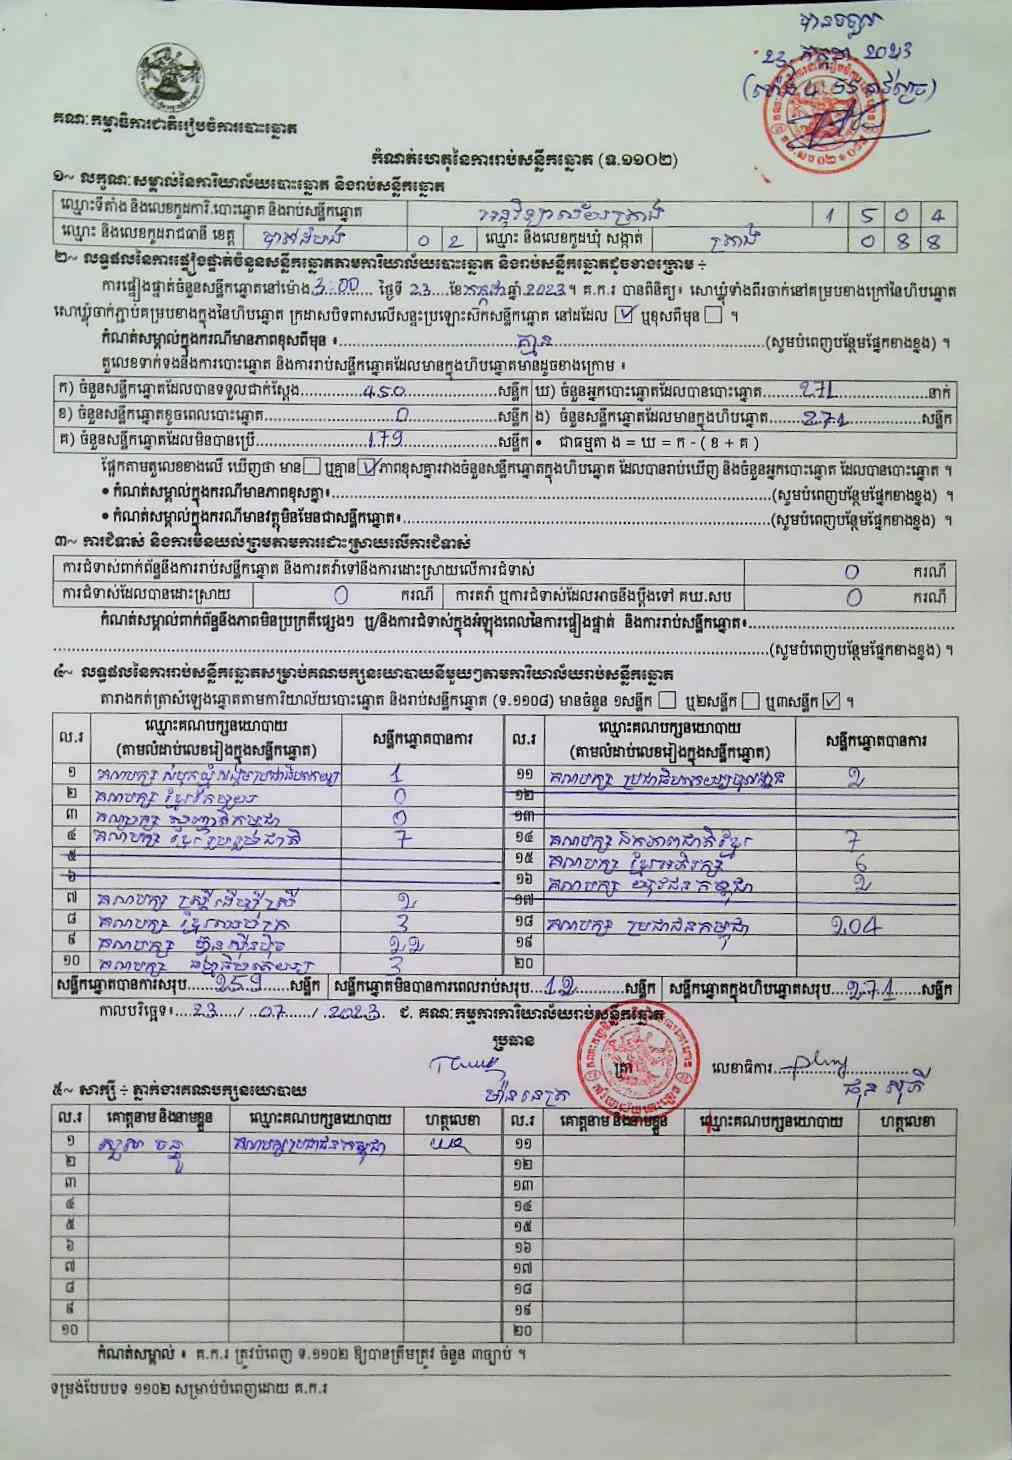 បានចម្លង
23 កក្កដា 2023
(ម៉ោង 4:55 នាទីល្ងាច)
គណៈកម្មាធិការជាតិរៀបចំការបោះឆ្នោត
កំណត់ហេតុនៃការរាប់សន្លឹកឆ្នោត (ទ.១១០២)
១~ លក្ខណៈសម្គាល់នៃការិយាល័យបោះឆ្នោត និងរាប់សន្លឹកឆ្នោត
ឈ្មោះទីតាំង និងលេខកូដការិ.បោះឆ្នោត និងរាប់សន្លឹកឆ្នោត អនុវិទ្យាល័យគ្រាំង 1 5 0 4
ឈ្មោះ និងលេខកូដរាជធានី ខេត្ត បាត់ដំបង 0 2 ឈ្មោះ និងលេខកូដឃុំ សង្កាត់ គ្រាំង 0 8 8
២~ លទ្ធផលនៃការផ្ទៀងផ្ទាត់ចំនួនសន្លឹកឆ្នោតតាមការិយាល័យបោះឆ្នោត និងរាប់សន្លឹកឆ្នោតដូចខាងក្រោម ÷
ការផ្ទៀងផ្ទាត់ចំនួនសន្លឹកឆ្នោតនៅម៉ោង 3:00 ថ្ងៃទី 23 ខែកក្កដា ឆ្នាំ 2023។ គ.ក.រ បានពិនិត្យ៖ សោឃ្លុំទាំងពីរចាក់នៅគម្របខាងក្រៅនៃហិបឆ្នោត
សោឃ្លុំចាក់ភ្ជាប់គម្របខាងក្នុងនៃហិបឆ្នោត ក្រដាសបិទពាសលើសន្ទះប្រឡោះសិកសន្លឹកឆ្នោត នៅដដែល ☑ ឬខុសពីមុន ☐ ។
កំណត់សម្គាល់ក្នុងករណីមានភាពខុសពីមុន ៖ គ្មាន (សូមបំពេញបន្ថែមផ្នែកខាងខ្នង) ។
តួលេខទាក់ទងនឹងការបោះឆ្នោត និងការរាប់សន្លឹកឆ្នោតដែលមានក្នុងហិបឆ្នោតមានដូចខាងក្រោម ៖
ក) ចំនួនសន្លឹកឆ្នោតដែលបានទទួលជាក់ស្តែង 450 សន្លឹក ឃ) ចំនួនអ្នកបោះឆ្នោតដែលបានបោះឆ្នោត 271 នាក់
ខ) ចំនួនសន្លឹកឆ្នោតខូចពេលបោះឆ្នោត 0 សន្លឹក ង) ចំនួនសន្លឹកឆ្នោតដែលមានក្នុងហិបឆ្នោត 271 សន្លឹក
គ) ចំនួនសន្លឹកឆ្នោតដែលមិនបានប្រើ 179 សន្លឹក • ជាធម្មតា ង = ឃ = ក - ( ខ + គ )
ផ្អែកតាមតួលេខខាងលើ ឃើញថា មាន ☐ ឬគ្មាន ☑ ភាពខុសគ្នារវាងចំនួនសន្លឹកឆ្នោតក្នុងហិបឆ្នោត ដែលបានរាប់ឃើញ និងចំនួនអ្នកបោះឆ្នោត ដែលបានបោះឆ្នោត ។
• កំណត់សម្គាល់ក្នុងករណីមានភាពខុសគ្នា៖ (សូមបំពេញបន្ថែមផ្នែកខាងខ្នង) ។
• កំណត់សម្គាល់ក្នុងករណីមានវត្ថុមិនមែនជាសន្លឹកឆ្នោត៖ (សូមបំពេញបន្ថែមផ្នែកខាងខ្នង) ។
៣~ ការជំទាស់ និងការមិនយល់ព្រមតាមការដោះស្រាយលើការជំទាស់
ការជំទាស់ពាក់ព័ន្ធនឹងការរាប់សន្លឹកឆ្នោត និងការតវ៉ាទៅនឹងការដោះស្រាយលើការជំទាស់ 0 ករណី
ការជំទាស់ដែលបានដោះស្រាយ 0 ករណី ការតវ៉ា ឬការជំទាស់ដែលអាចនឹងប្តឹងទៅ គឃ.សប 0 ករណី
កំណត់សម្គាល់ពាក់ព័ន្ធនឹងភាពមិនប្រក្រតីផ្សេងៗ ឬ/និងការជំទាស់ក្នុងអំឡុងពេលនៃការផ្ទៀងផ្ទាត់ និងការរាប់សន្លឹកឆ្នោត៖
(សូមបំពេញបន្ថែមផ្នែកខាងខ្នង) ។
៤~ លទ្ធផលនៃការរាប់សន្លឹកឆ្នោតសម្រាប់គណបក្សនយោបាយនីមួយៗតាមការិយាល័យរាប់សន្លឹកឆ្នោត
តារាងកត់ត្រាសំឡេងឆ្នោតតាមការិយាល័យបោះឆ្នោត និងរាប់សន្លឹកឆ្នោត (ទ.១១០៨) មានចំនួន ១សន្លឹក ☐ ឬ២សន្លឹក ☐ ឬ៣សន្លឹក ☑ ។
ល.រ ឈ្មោះគណបក្សនយោបាយ (តាមលំដាប់លេខរៀងក្នុងសន្លឹកឆ្នោត) សន្លឹកឆ្នោតបានការ ល.រ ឈ្មោះគណបក្សនយោបាយ (តាមលំដាប់លេខរៀងក្នុងសន្លឹកឆ្នោត) សន្លឹកឆ្នោតបានការ
១ គណបក្ស សំបុកឃ្មុំសង្គមប្រជាធិបតេយ្យ 1 ១១ គណបក្ស ប្រជាធិបតេយ្យមូលដ្ឋាន 2
២ គណបក្ស ខ្មែរតែមួយ 0 ១២
៣ គណបក្ស សញ្ជាតិកម្ពុជា 0 ១៣
៤ គណបក្ស ខ្មែររួបរួមជាតិ 7 ១៤ គណបក្ស ឯកភាពជាតិខ្មែរ 7
៥ ១៥ គណបក្ស ខ្មែរអភិរក្ស 6
៦ ១៦ គណបក្ស យុវជនកម្ពុជា 2
៧ គណបក្ស ស្ត្រីដើម្បីស្ត្រី 2 ១៧
៨ គណបក្ស ខ្មែរឈប់ក្រ 3 ១៨ គណបក្ស ប្រជាជនកម្ពុជា 204
៩ គណបក្ស ហ៊្វុនស៊ិនប៉ិច 22 ១៩
១០ គណបក្ស ធម្មាធិបតេយ្យ 3 ២០
សន្លឹកឆ្នោតបានការសរុប 259 សន្លឹក សន្លឹកឆ្នោតមិនបានការពេលរាប់សរុប 12 សន្លឹក សន្លឹកឆ្នោតក្នុងហិបឆ្នោតសរុប 271 សន្លឹក
កាលបរិច្ឆេទ៖ 23 / 07 / 2023 ជ. គណៈកម្មការការិយាល័យរាប់សន្លឹកឆ្នោត
ប្រធាន
ត្រា លេខាធិការ
៥~ សាក្សី ÷ ភ្នាក់ងារគណបក្សនយោបាយ
ល.រ គោត្តនាម និងនាមខ្លួន ឈ្មោះគណបក្សនយោបាយ ហត្ថលេខា ល.រ គោត្តនាម និងនាមខ្លួន ឈ្មោះគណបក្សនយោបាយ ហត្ថលេខា
១ គណបក្សប្រជាជនកម្ពុជា ១១
២ ១២
៣ ១៣
៤ ១៤
៥ ១៥
៦ ១៦
៧ ១៧
៨ ១៨
៩ ១៩
១០ ២០
កំណត់សម្គាល់ ៖ គ.ក.រ ត្រូវបំពេញ ទ.១១០២ ឱ្យបានត្រឹមត្រូវ ចំនួន ៣ច្បាប់ ។
ទម្រង់បែបបទ ១១០២ សម្រាប់បំពេញដោយ គ.ក.រ